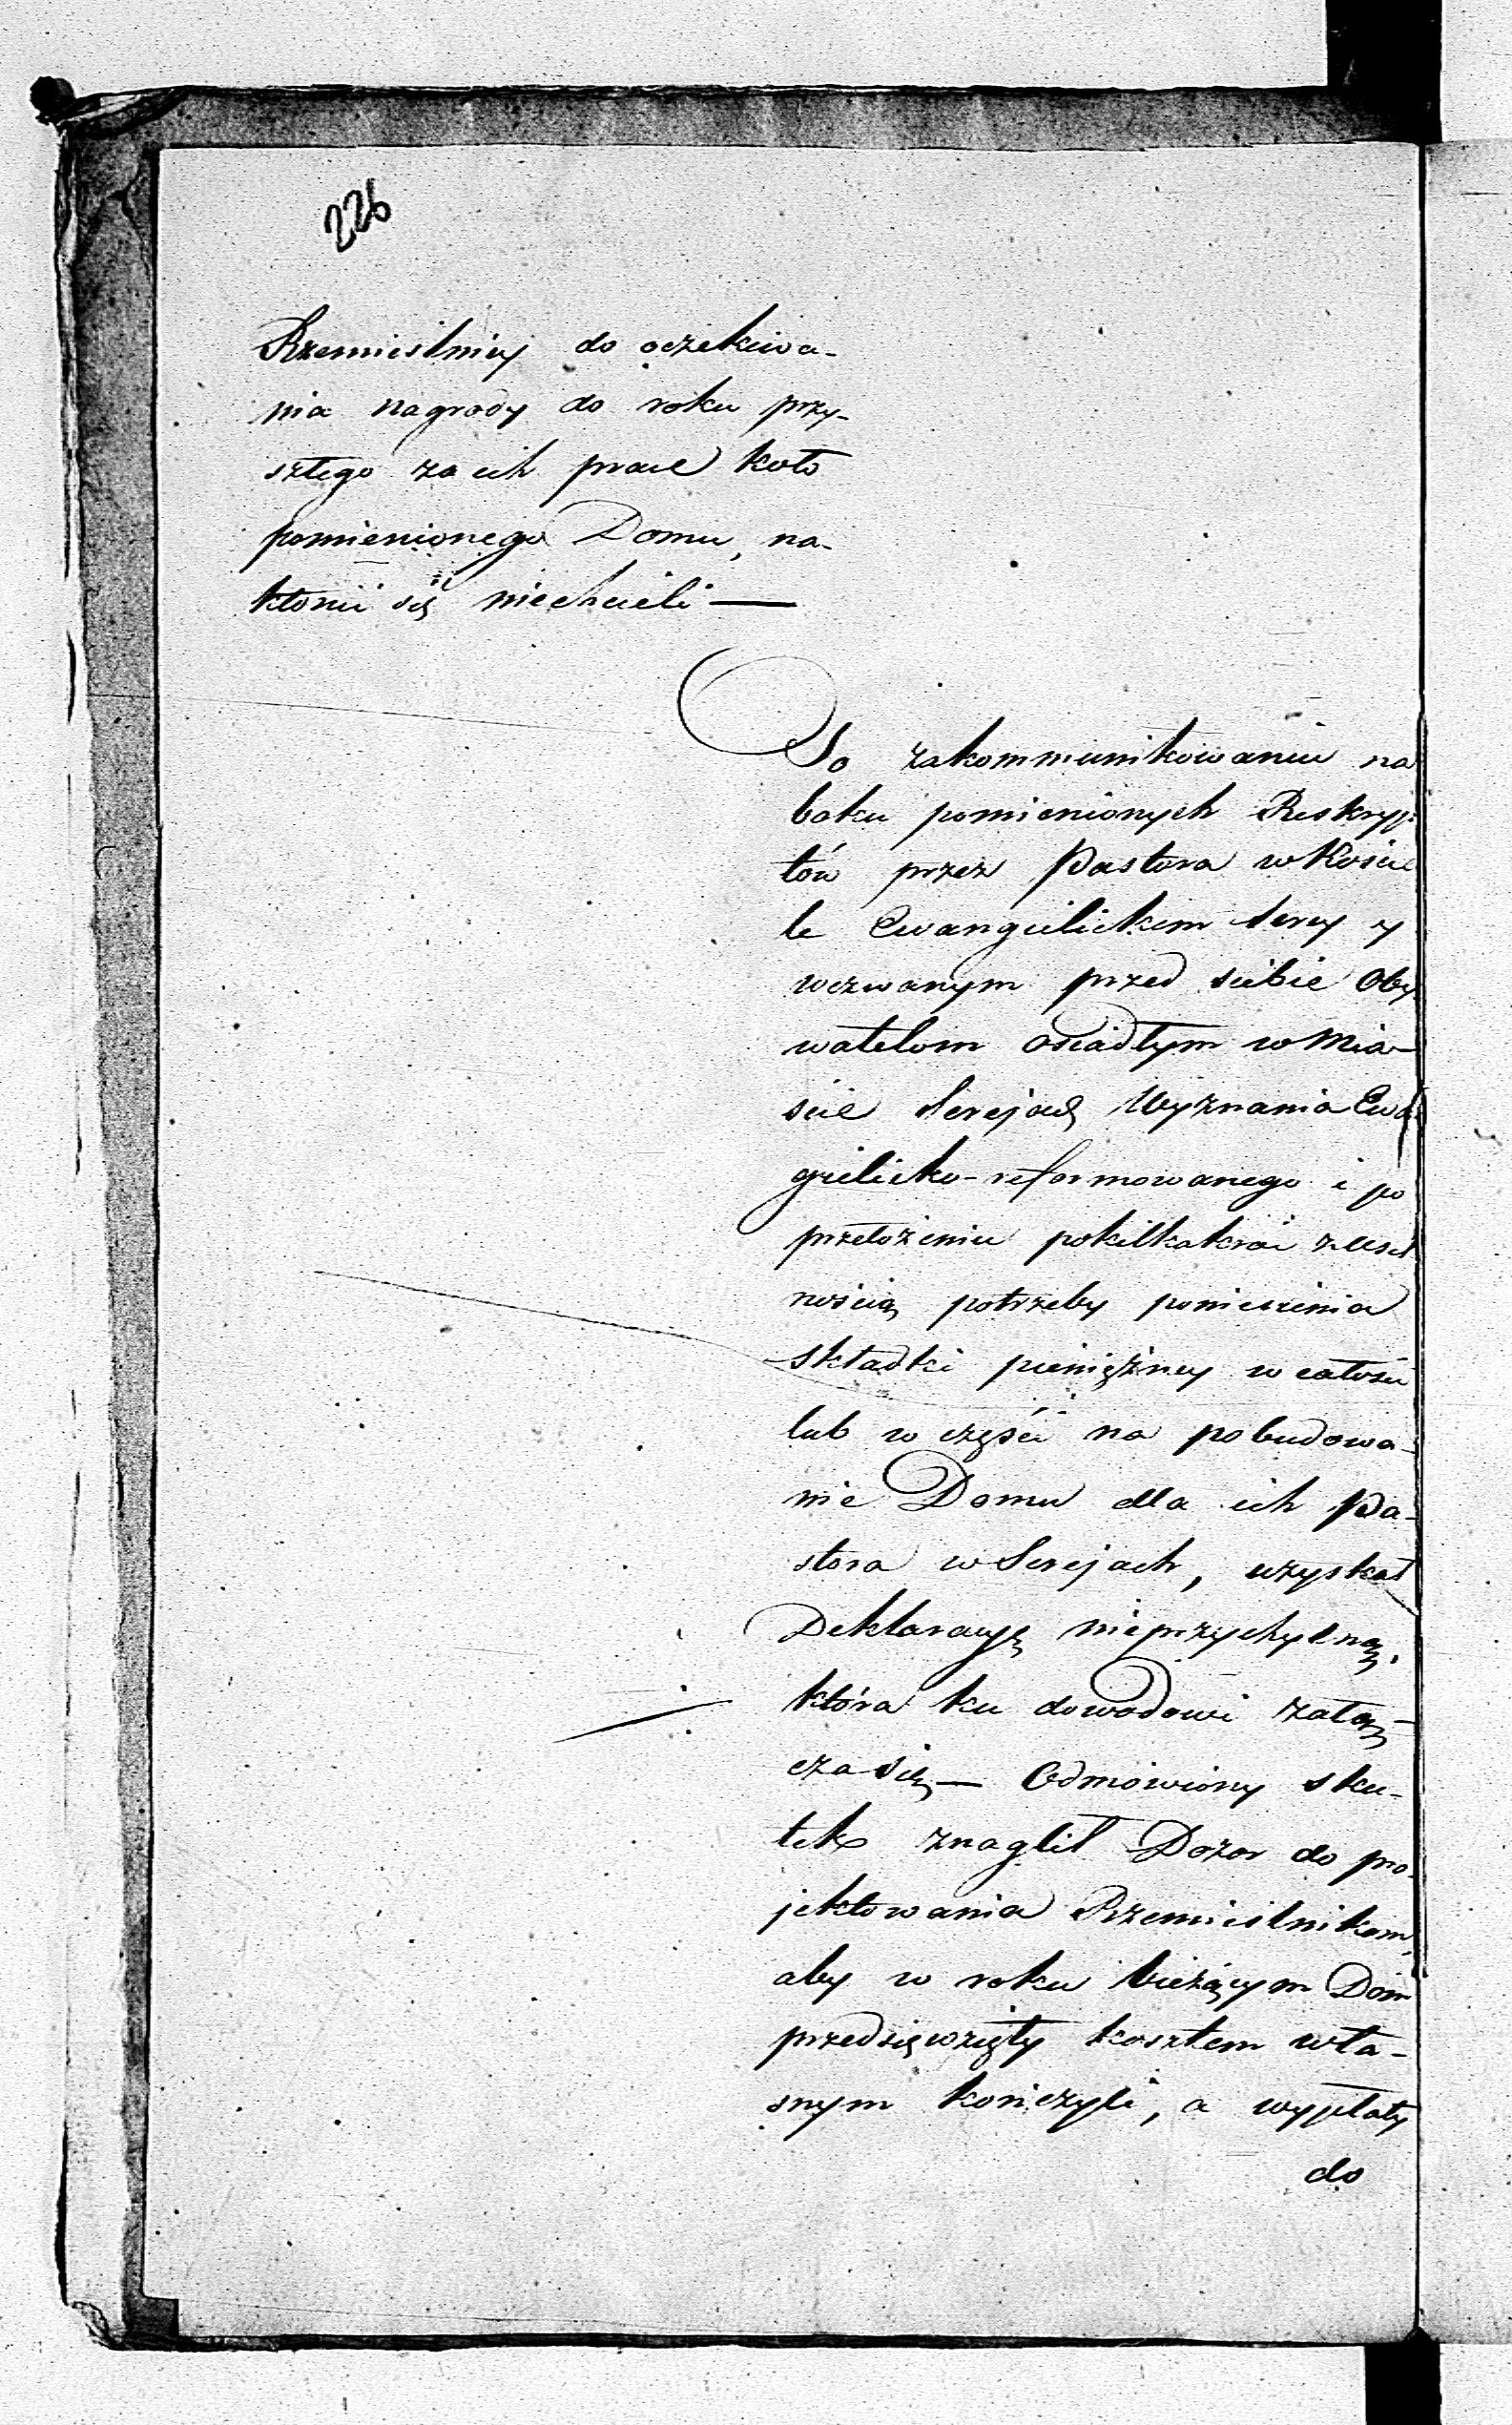 226
Rzemieślnicy do oczekiwa-
nia nagrody do roku przy-
szłego za ich prace koło
pomienionego Domu, na-
kłonić się niechcieli —
Po zakommunikowaniu na
boku pomienionych Reskryp-
tów przez Pastora w Koście
le Ewangielickim Serey y
wezwanym przed siebie Oby
watelom osiadłym w Mia-
ście Serejach Wyznania Ewa
gielicko-reformowanego i po
przełożeniu pokilkakroć z usil
nością potrzeby poniesienia
składki pieniężney w całości
lub w części na pobudowa-
nie Domu dla ich Pa-
stora w Serejach, uzyskał
Deklaracyą nieprzychylną,
która ku dowodowi załą-
cza się — Odmówiony sku-
tek znaglił Dozor do pro-
jektowania Rzemieślnikom,
aby w roku bieżącym Dom
przedsięwzięty kosztem wła-
snym kończyli, a wypłaty
do